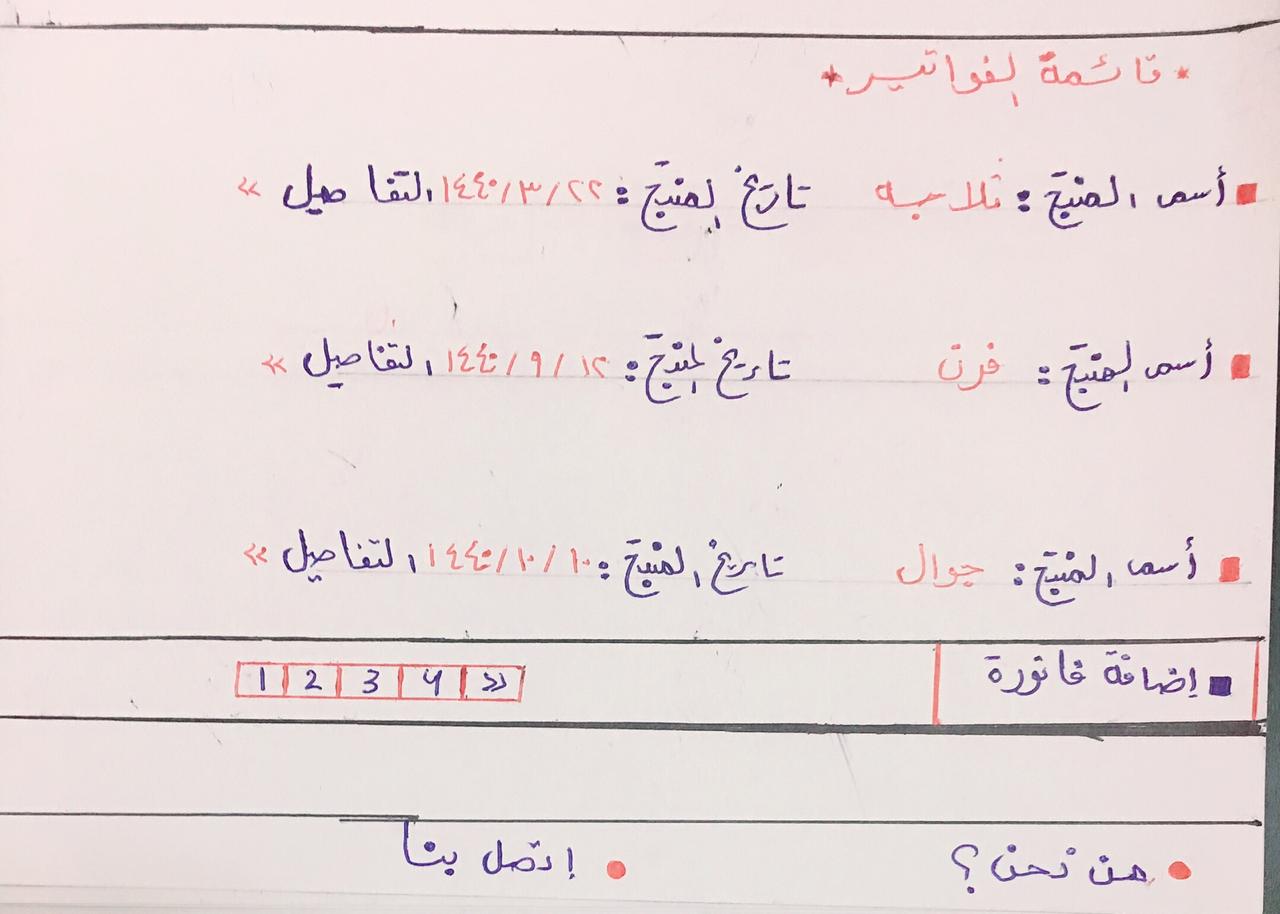 * قائمة الفواتير *
أسم المنتج : ثلاجه تاريخ المنتج : ١٤٤٠/٣/٢٢ التفاصيل »
أسم المنتج : فرن تاريخ المنتج : ١٤٤٠/٩/١٢ التفاصيل »
أسم المنتج : جوال تاريخ المنتج : ١٤٤٠/١٠/١٠ التفاصيل »
إضافة فاتورة 1 2 3 4 »
من نحن ؟ إتصل بنا